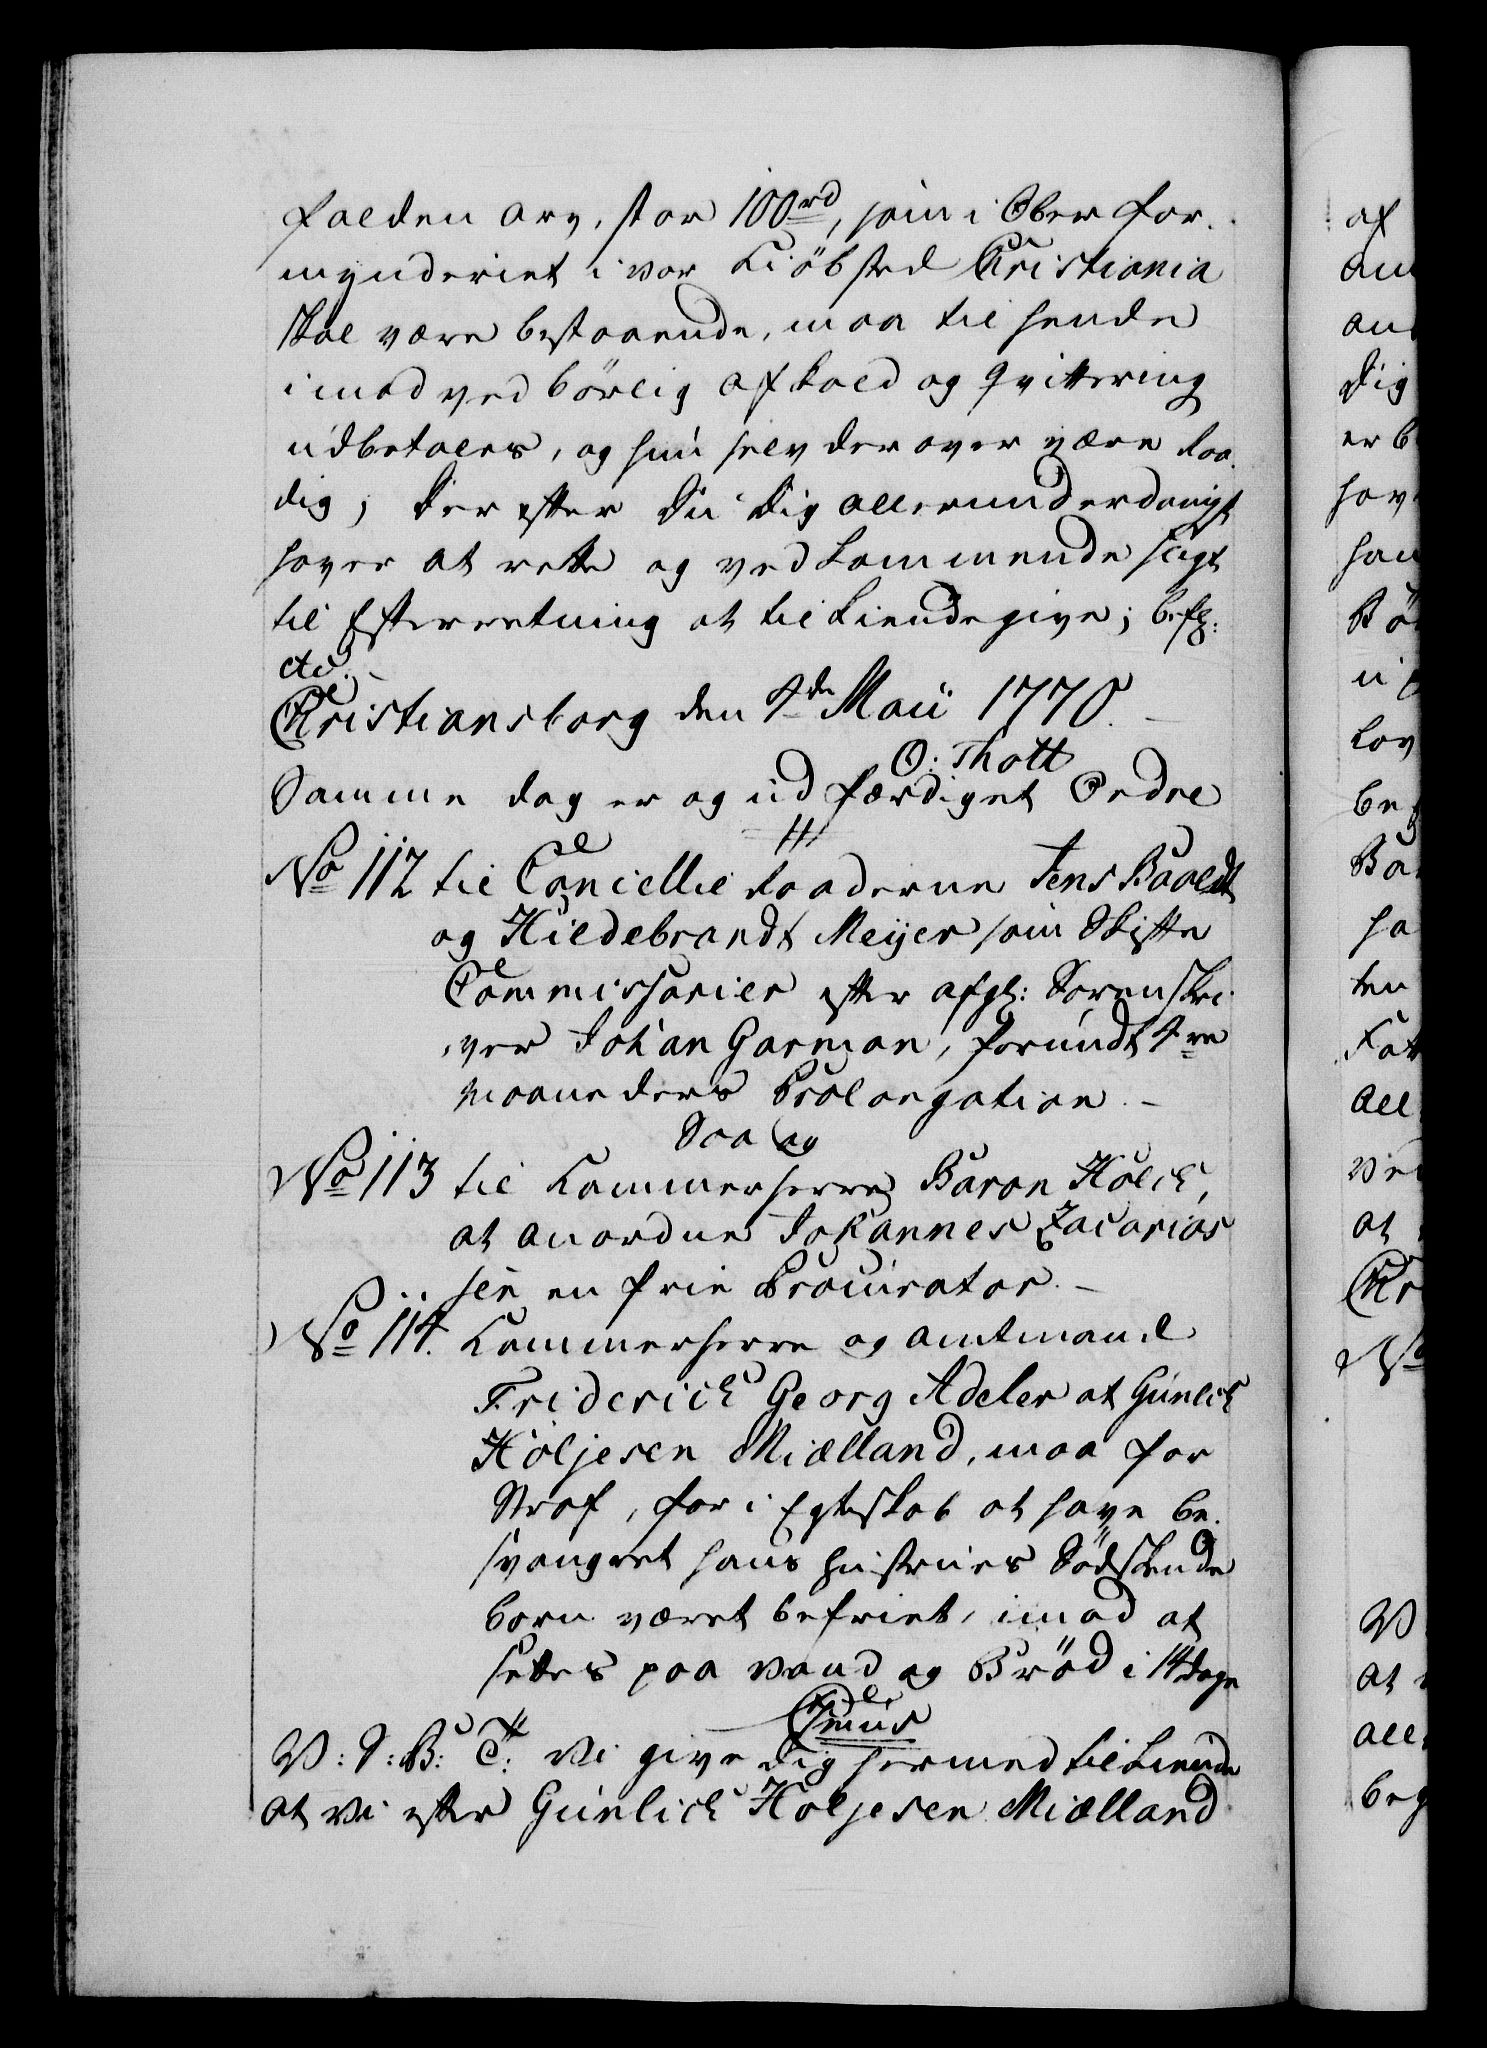 falden arv, stor 100rd, som i Ober for-
mynderiet i vor Kiöbsted Christiania
skal være bestaaende, maa til hende
imod ved börlig afkald og Qvittering
udbetales, og hun selv derover være raa-
dig; Der efter Du Dig allerunderdanigst
haver at rette og vedkommende sligt
til Efterretning at tilkiendegive; befl:
etc.
Christiansborg den 4de Maii 1770.
O: Thott
Samme dag er og udfærdiget Ordre
No 112 til Cancellie raaderne Jens Baaldt
og Hildebrandt Meijer som Skifte
Commissarier efter afgl: Sorenskri-
ver Johan Garman, forundt 4re
maaneders Prolongation.
Saa og
No 113 til Kammerherre Baron Holck,
at anordne Johannes Zacarias
sen en frie Procurator.
No 114. Kammerherre og Amtmand
Friderich Georg Adeler at Gunlich
Holjesen Miælland, maa for
Straf, for i Egteskab at have be-
svangret hans Hustrues Södskende
born været befriet, imod at
settes paa Vand og Bröd i 14 dage
V: G: B: T: Vi give dig hermed tilkiende
at Vi efter Gunlich Holjesen Miælland
af
Dig
er b
hav
ham
ten
all
Ved
at
Chr
No
V
at
all
beg